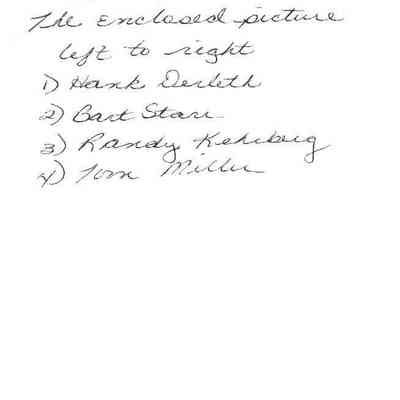 The enclosed picture
left to right
1) Hank Derleth
2) Bart Starr
3) Randy Kehrberg
4) Tom Miller